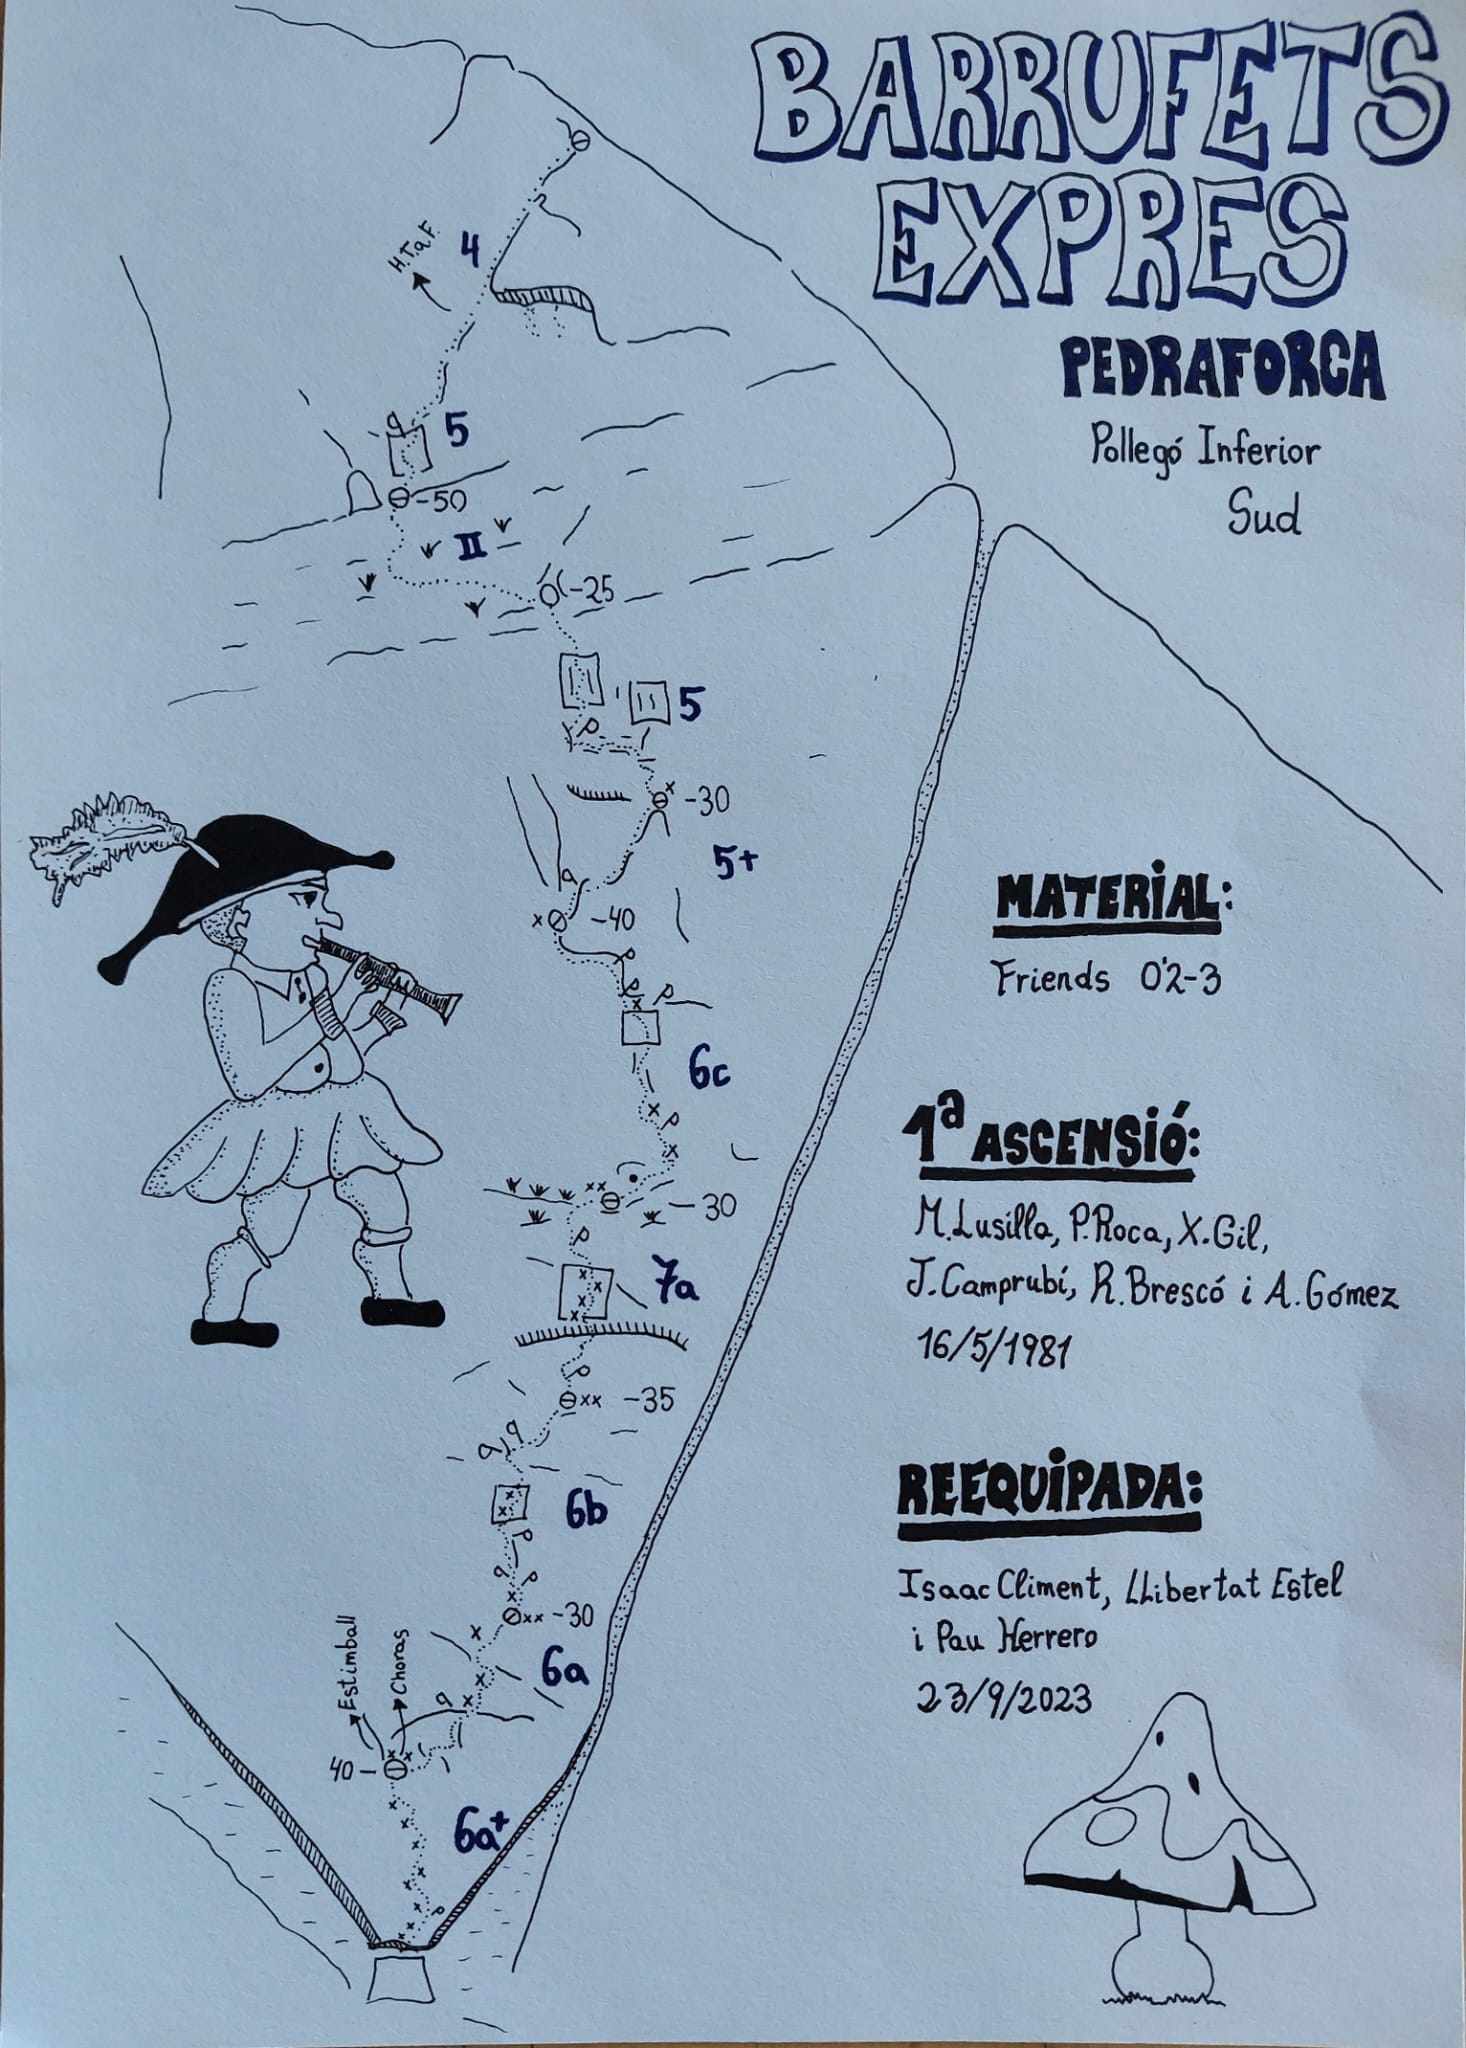 BARRUFETS
EXPRES
PEDRAFORCA
Pollegó Inferior
Sud
H.TaF.
4
5
-50
II
-25
5
-30
5+
-40
6c
-30
7a
-35
6b
-30
6a
Estimball
Choras
40-
6a+
MATERiAL:
Friends 0'2-3
1ª ASCENSIÓ:
M.Lusilla, P.Roca, X.Gil,
J.Camprubí, R.Brescó i A.Gómez
16/5/1981
REEQUIPADA:
Isaac Climent, LLibertat Estel
i Pau Herrero
23/9/2023